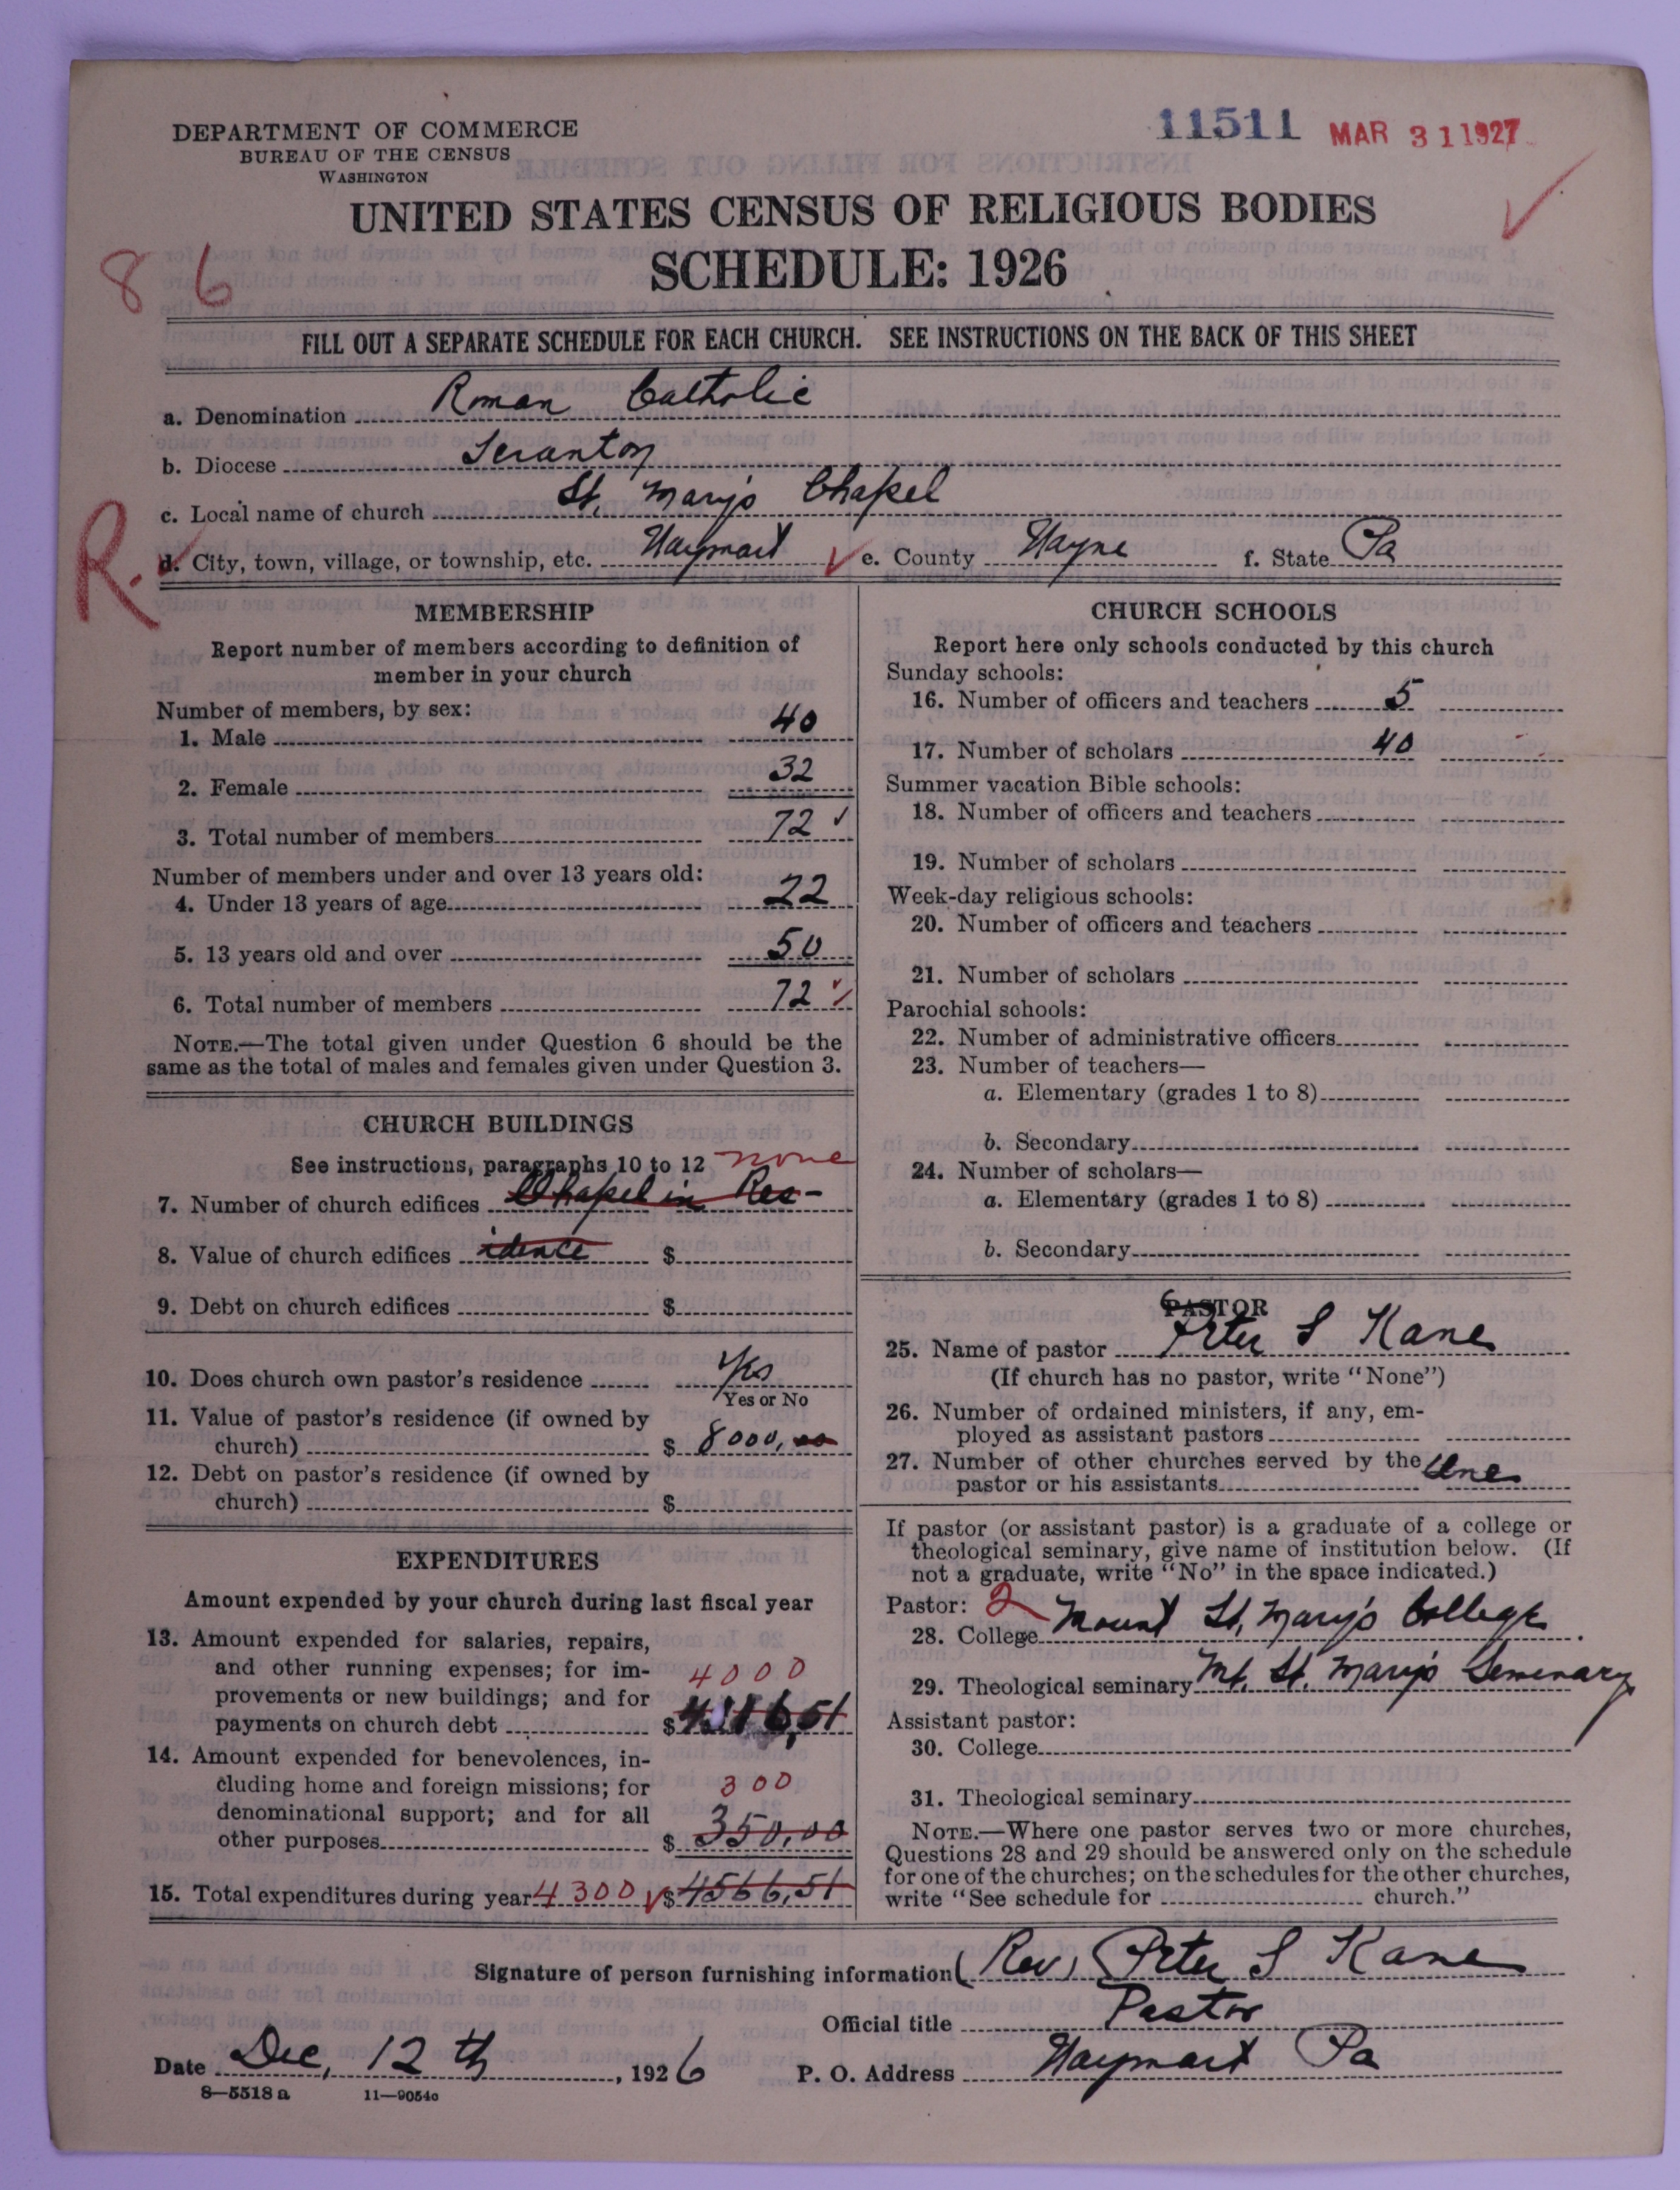 DEPARTMENT OF COMMERCE
BUREAU OF THE CENSUS
WASHINGTON
11511 MAR 31 1927
UNITED STATES CENSUS OF RELIGIOUS BODIES
SCHEDULE: 1926
8 6
FILL OUT A SEPARATE SCHEDULE FOR EACH CHURCH. SEE INSTRUCTIONS ON THE BACK OF THIS SHEET
a. Denomination Roman Catholic
b. Diocese Scranton
c. Local name of church St. Mary's Chapel
R.
d. City, town, village, or township, etc. Waymart e. County Wayne f. State Pa
MEMBERSHIP
Report number of members according to definition of
member in your church
Number of members, by sex:
1. Male 40
2. Female 32
3. Total number of members 72 ✓
Number of members under and over 13 years old:
4. Under 13 years of age 22
5. 13 years old and over 50
6. Total number of members 72 ✓
NOTE.—The total given under Question 6 should be the
same as the total of males and females given under Question 3.
CHURCH BUILDINGS
See instructions, paragraphs 10 to 12 none
7. Number of church edifices Chapel in Res-
8. Value of church edifices idence $
9. Debt on church edifices $
10. Does church own pastor's residence Yes
Yes or No
11. Value of pastor's residence (if owned by
church) $ 8000,00
12. Debt on pastor's residence (if owned by
church) $
EXPENDITURES
Amount expended by your church during last fiscal year
13. Amount expended for salaries, repairs,
and other running expenses; for im-
provements or new buildings; and for 4000
payments on church debt $ 4216,51
14. Amount expended for benevolences, in-
cluding home and foreign missions; for 300
denominational support; and for all
other purposes $ 350,00
15. Total expenditures during year 4300 ✓ $ 4566,51
CHURCH SCHOOLS
Report here only schools conducted by this church
Sunday schools:
16. Number of officers and teachers 5
17. Number of scholars 40
Summer vacation Bible schools:
18. Number of officers and teachers
19. Number of scholars
Week-day religious schools:
20. Number of officers and teachers
21. Number of scholars
Parochial schools:
22. Number of administrative officers
23. Number of teachers—
a. Elementary (grades 1 to 8)
b. Secondary
24. Number of scholars—
a. Elementary (grades 1 to 8)
b. Secondary
PASTOR
25. Name of pastor Peter S Kane
(If church has no pastor, write "None")
26. Number of ordained ministers, if any, em-
ployed as assistant pastors
27. Number of other churches served by the
pastor or his assistants One
If pastor (or assistant pastor) is a graduate of a college or
theological seminary, give name of institution below. (If
not a graduate, write "No" in the space indicated.)
Pastor: 2
28. College Mount St. Mary's College
29. Theological seminary Mt. St. Mary's Seminary
Assistant pastor:
30. College
31. Theological seminary
NOTE.—Where one pastor serves two or more churches,
Questions 28 and 29 should be answered only on the schedule
for one of the churches; on the schedules for the other churches,
write "See schedule for church."
Signature of person furnishing information (Rev) Peter S Kane
Official title Pastor
Date Dec, 12 th, 1926 P. O. Address Waymart Pa
8—5518 a 11—9054c